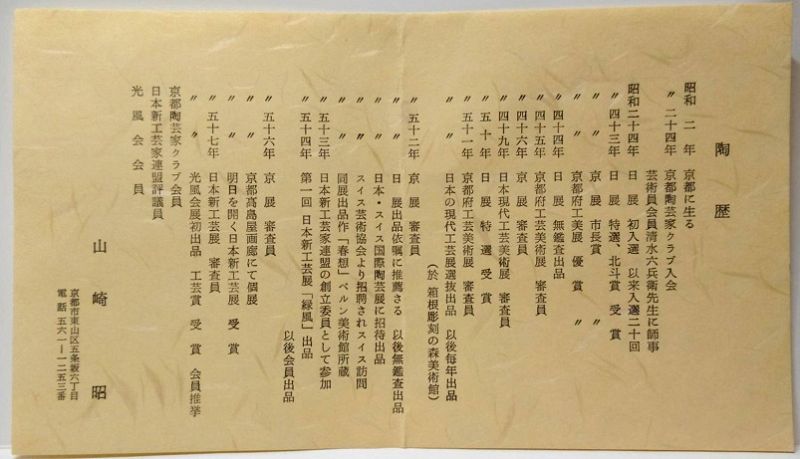 陶歴
昭和 二 年 京都に生る
〃 二十四年 京都陶芸家クラブ入会
芸術員会員清水六兵衛先生に師事
昭和二十四年 日 展 初入選 以来入選二十回
〃四十三年 日 展 特選、北斗賞 受賞
〃 〃 京 展 市長賞 〃
〃 〃 京都府工美展 優 賞 〃
〃四十四年 日 展 無鑑査出品
〃四十五年 京都府工芸美術展 審査員
〃四十六年 京 展 審査員
〃四十九年 日本現代工芸美術展 審査員
〃 五十年 日 展 特 選 受 賞
〃五十一年 京都府工芸美術展 審査員
〃 〃 日本の現代工芸展選抜出品 以後毎年出品
(於 箱根彫刻の森美術館)
〃五十二年 京 展 審査員
〃 〃 日 展出品依嘱に推薦さる 以後無鑑査出品
〃 〃 日本・スイス国際陶芸展に招待出品
〃 〃 スイス芸術協会より招聘されスイス訪問
〃 〃 同展出品作「春想」ベルン美術館所蔵
〃五十三年 日本新工芸家連盟の創立委員として参加
〃五十四年 第一回 日本新工芸展「緑風」出品
以後会員出品
〃五十六年 京 展 審査員
〃 〃 京都高島屋画廊にて個展
〃 〃 明日を開く日本新工芸展 受賞
〃五十七年 日本新工芸展 審査員
〃 〃 光風会展初出品 工芸賞 受 賞 会員推挙
京都陶芸家クラブ会員
日本新工芸家連盟評議員
光 風 会 会 員
山 崎 昭
京都市東山区五条坂六丁目
電 話 五六一ー一二五三番